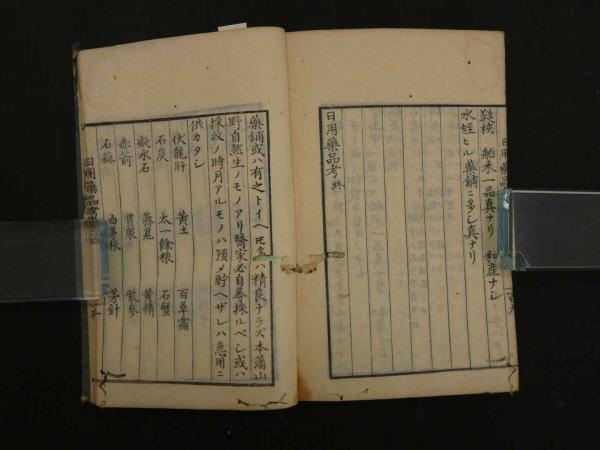 鼈校 舶来一品真ナリ 和産ナシ
水蛭 ヒル 藥鋪ニ多シ真ナリ
日用藥品考 終
藥鋪或ハ有之トイヘ𪜈多ハ精良ナラズ本藩山
野自然生ノモノアリ醫家必自尋採ルベシ或ハ
採收ノ時月アルモノハ預メ貯ヘザレハ急用ニ
供カタシ
伏龍肝 黄土 百草霜
石炭 太一餘粮 石蟹
凝水石 薺苨 黄精
赤箭 貫衆 紫參
石蒜 白茅根
日用藥品考